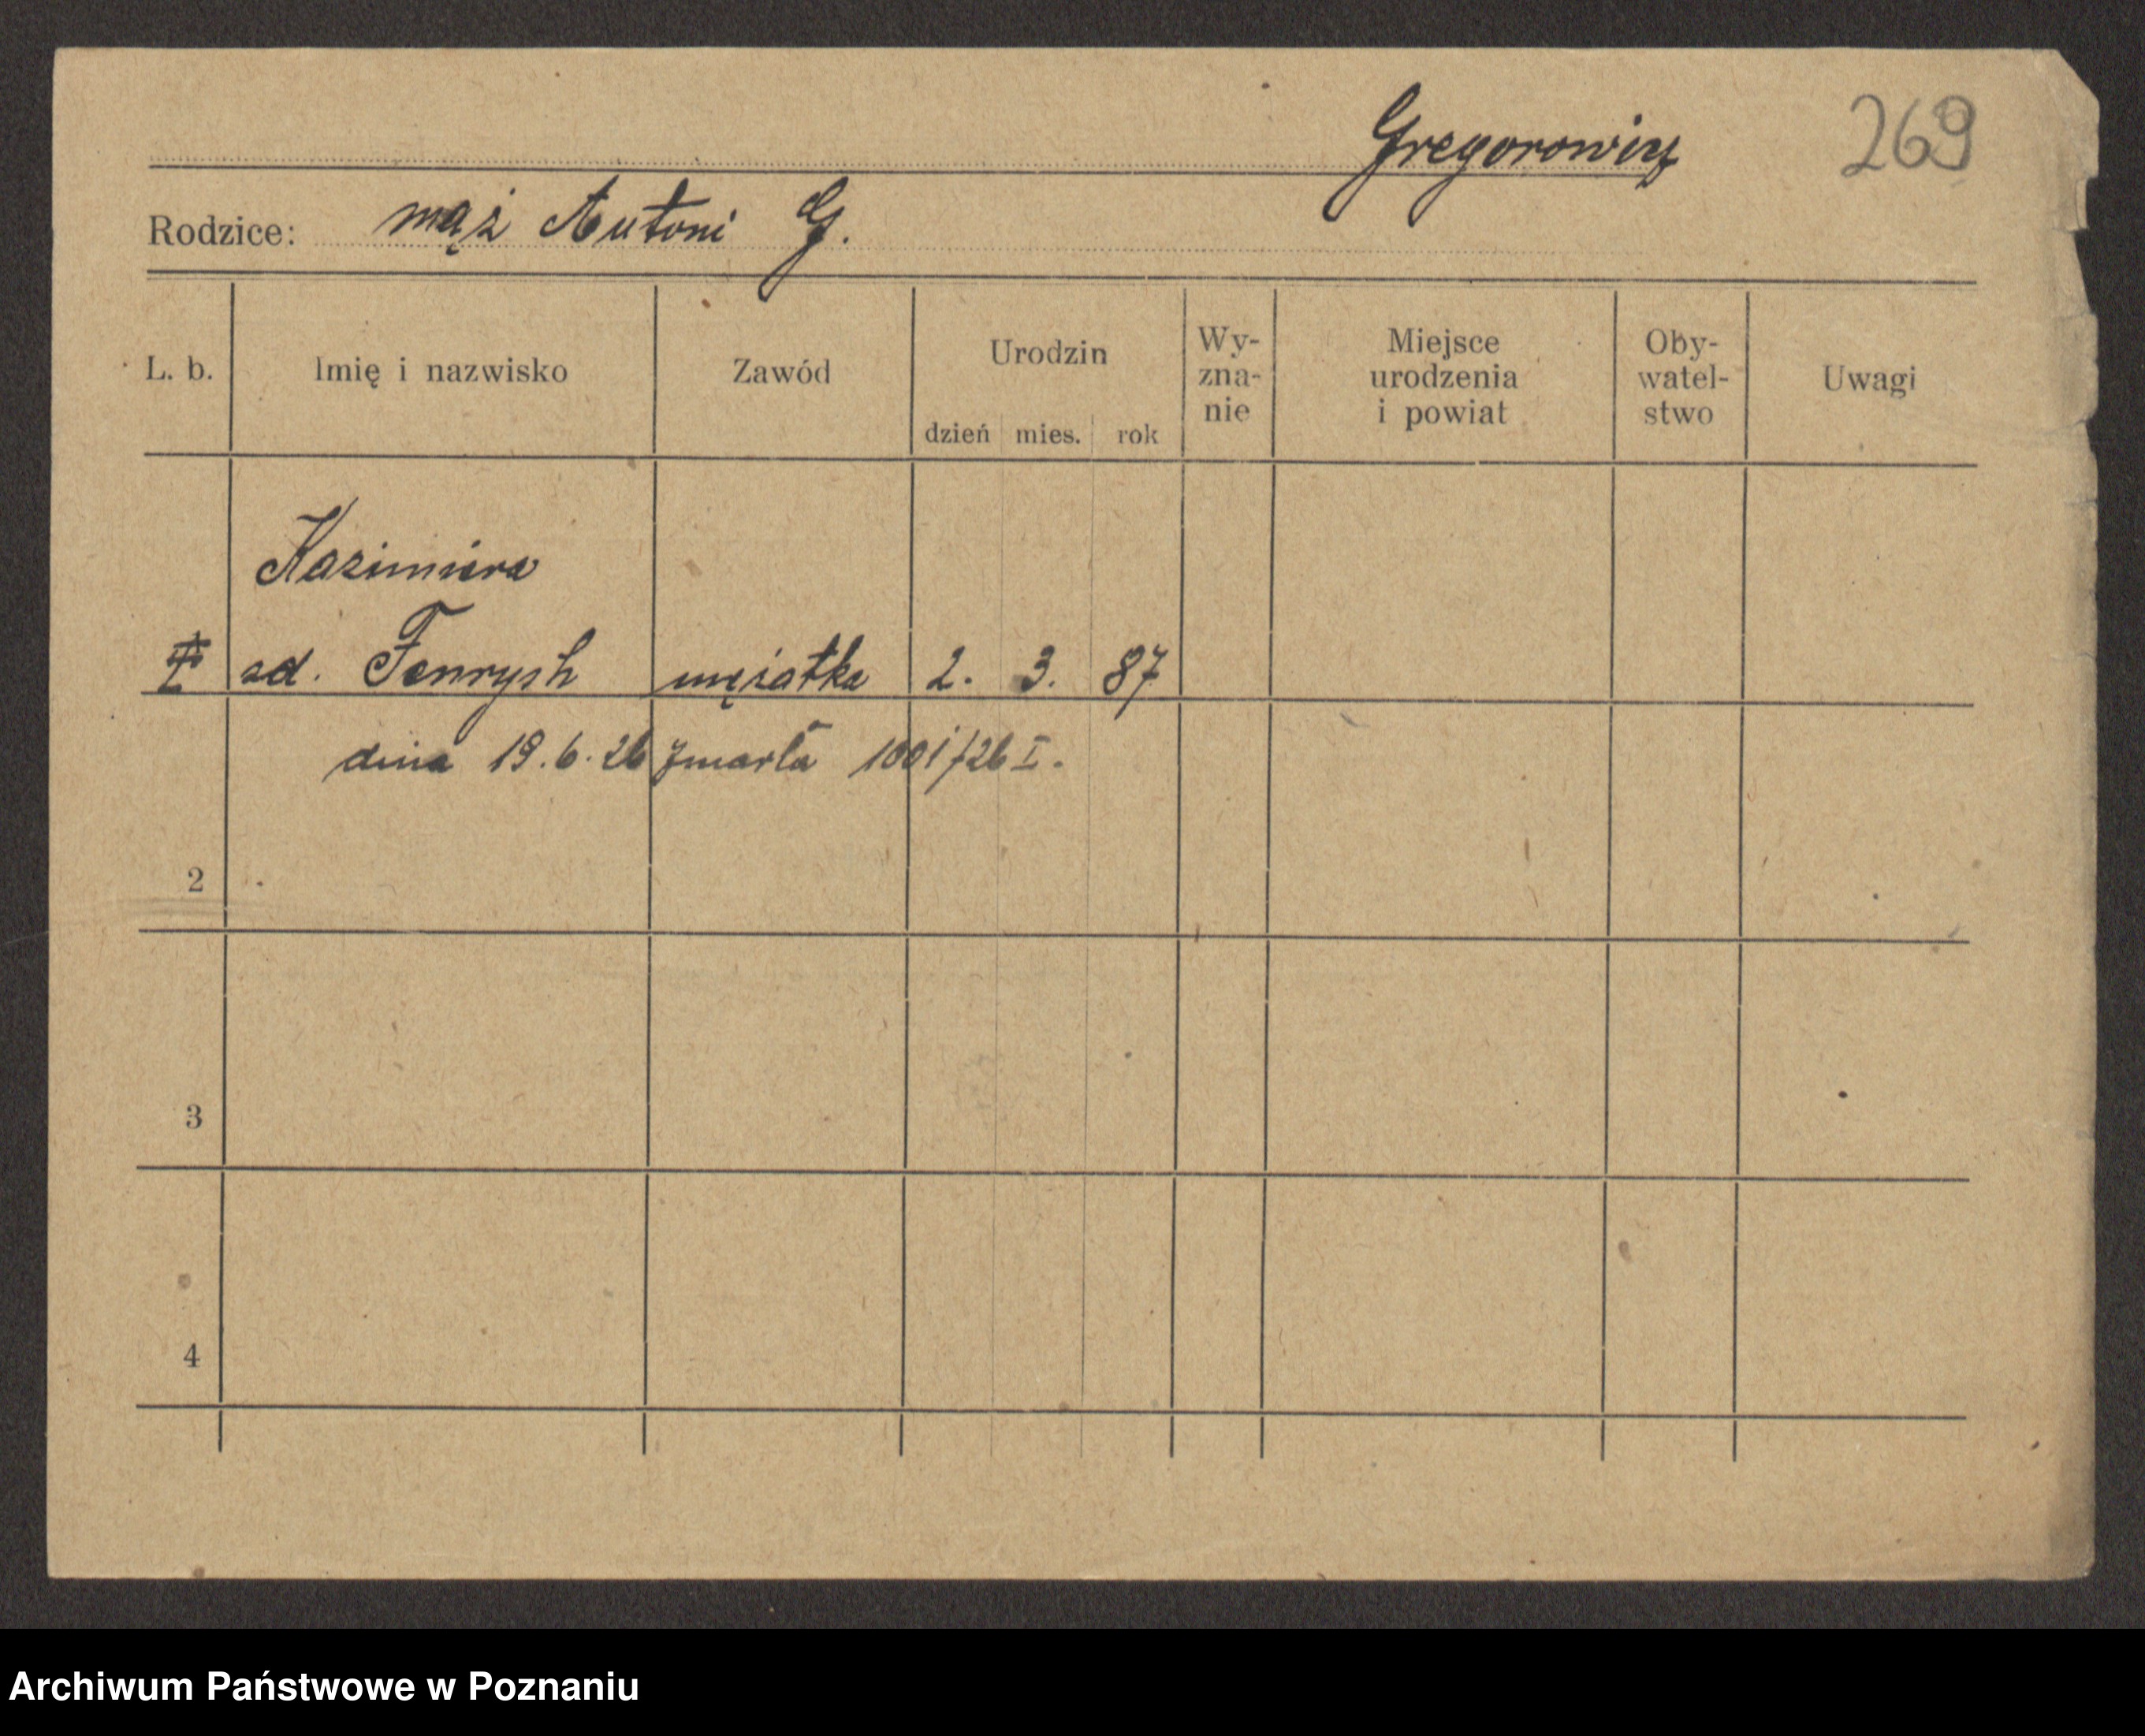 Gregorowicz 269
Rodzice: mąż Antoni G.
L. b. Imię i nazwisko Zawód Urodzin dzień mies. rok Wy-zna-nie Miejsce urodzenia i powiat Oby-watel-stwo Uwagi
Kazimiera
zd. Fenrych mężatka 2. 3. 87
dnia 19.6.26 zmarła 1001/26 I.
2
3
4
Archiwum Państwowe w Poznaniu